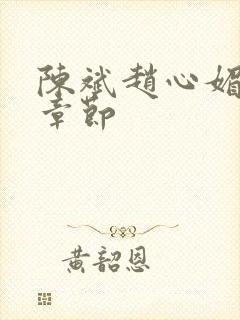 陳斌趙心媚
章節
黃韶恩